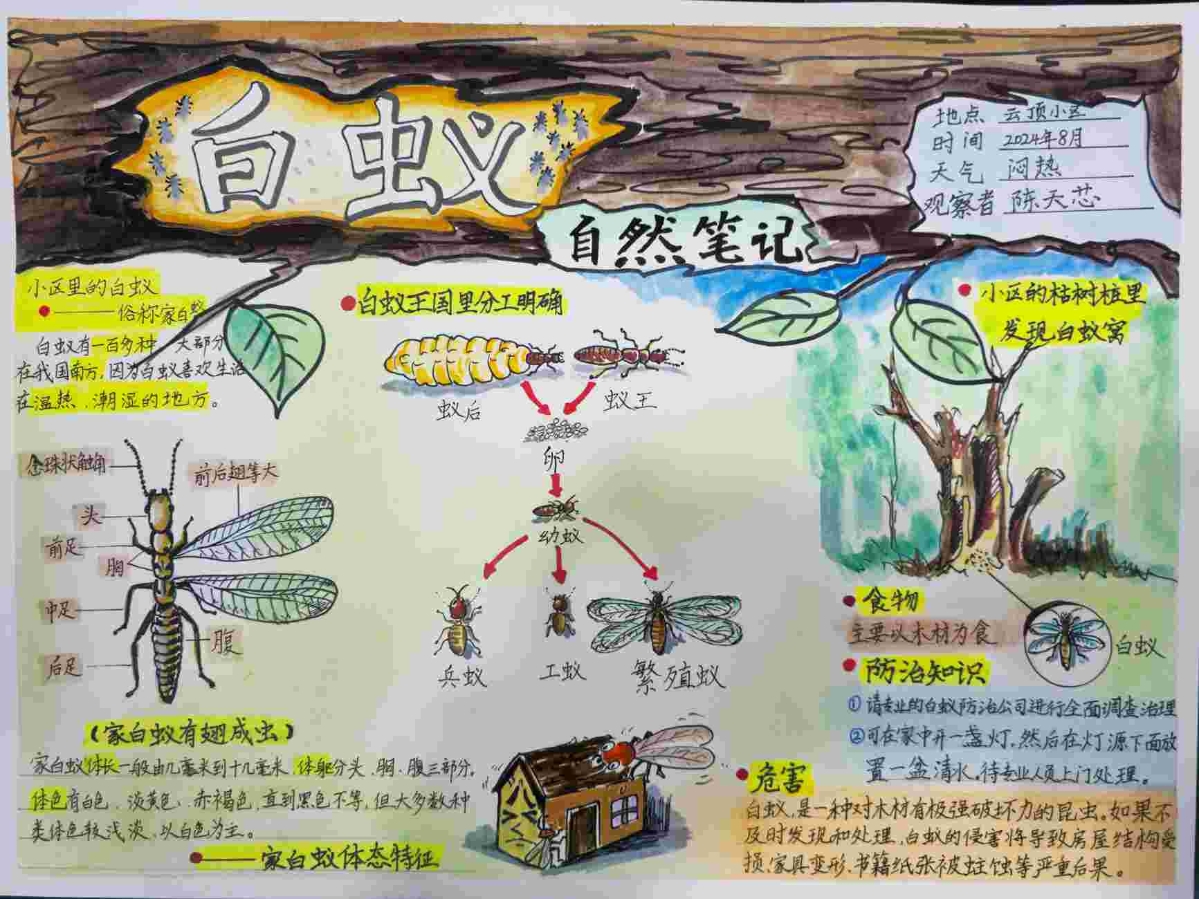 白蚁
自然笔记
地点 云顶小区
时间 2024年8月
天气 闷热
观察者 陈天芯
小区里的白蚁
——俗称家白蚁
白蚁有一百多种 大部分
在我国南方,因为白蚁喜欢生活
在温热、潮湿的地方。
念珠状触角
前后翅等大
头
前足
胸
中足
腹
后足
(家白蚁有翅成虫)
家白蚁体长一般由几毫米到十几毫米,体躯分头、胸、腹三部分,
体色有白色、淡黄色、赤褐色,直到黑色不等,但大多数种
类体色较浅淡,以白色为主。
——家白蚁体态特征
白蚁王国里分工明确
蚁后
蚁王
卵
幼蚁
兵蚁
工蚁
繁殖蚁
小区的枯树桩里
发现白蚁窝
食物
主要以木材为食
白蚁
防治知识
①请专业的白蚁防治公司进行全面调查治理
②可在家中开一盏灯,然后在灯源下面放
置一盆清水。待专业人员上门处理。
危害
白蚁,是一种对木材有极强破坏力的昆虫。如果不
及时发现和处理,白蚁的侵害将导致房屋结构受
损,家具变形、书籍纸张被蛀蚀等严重后果。